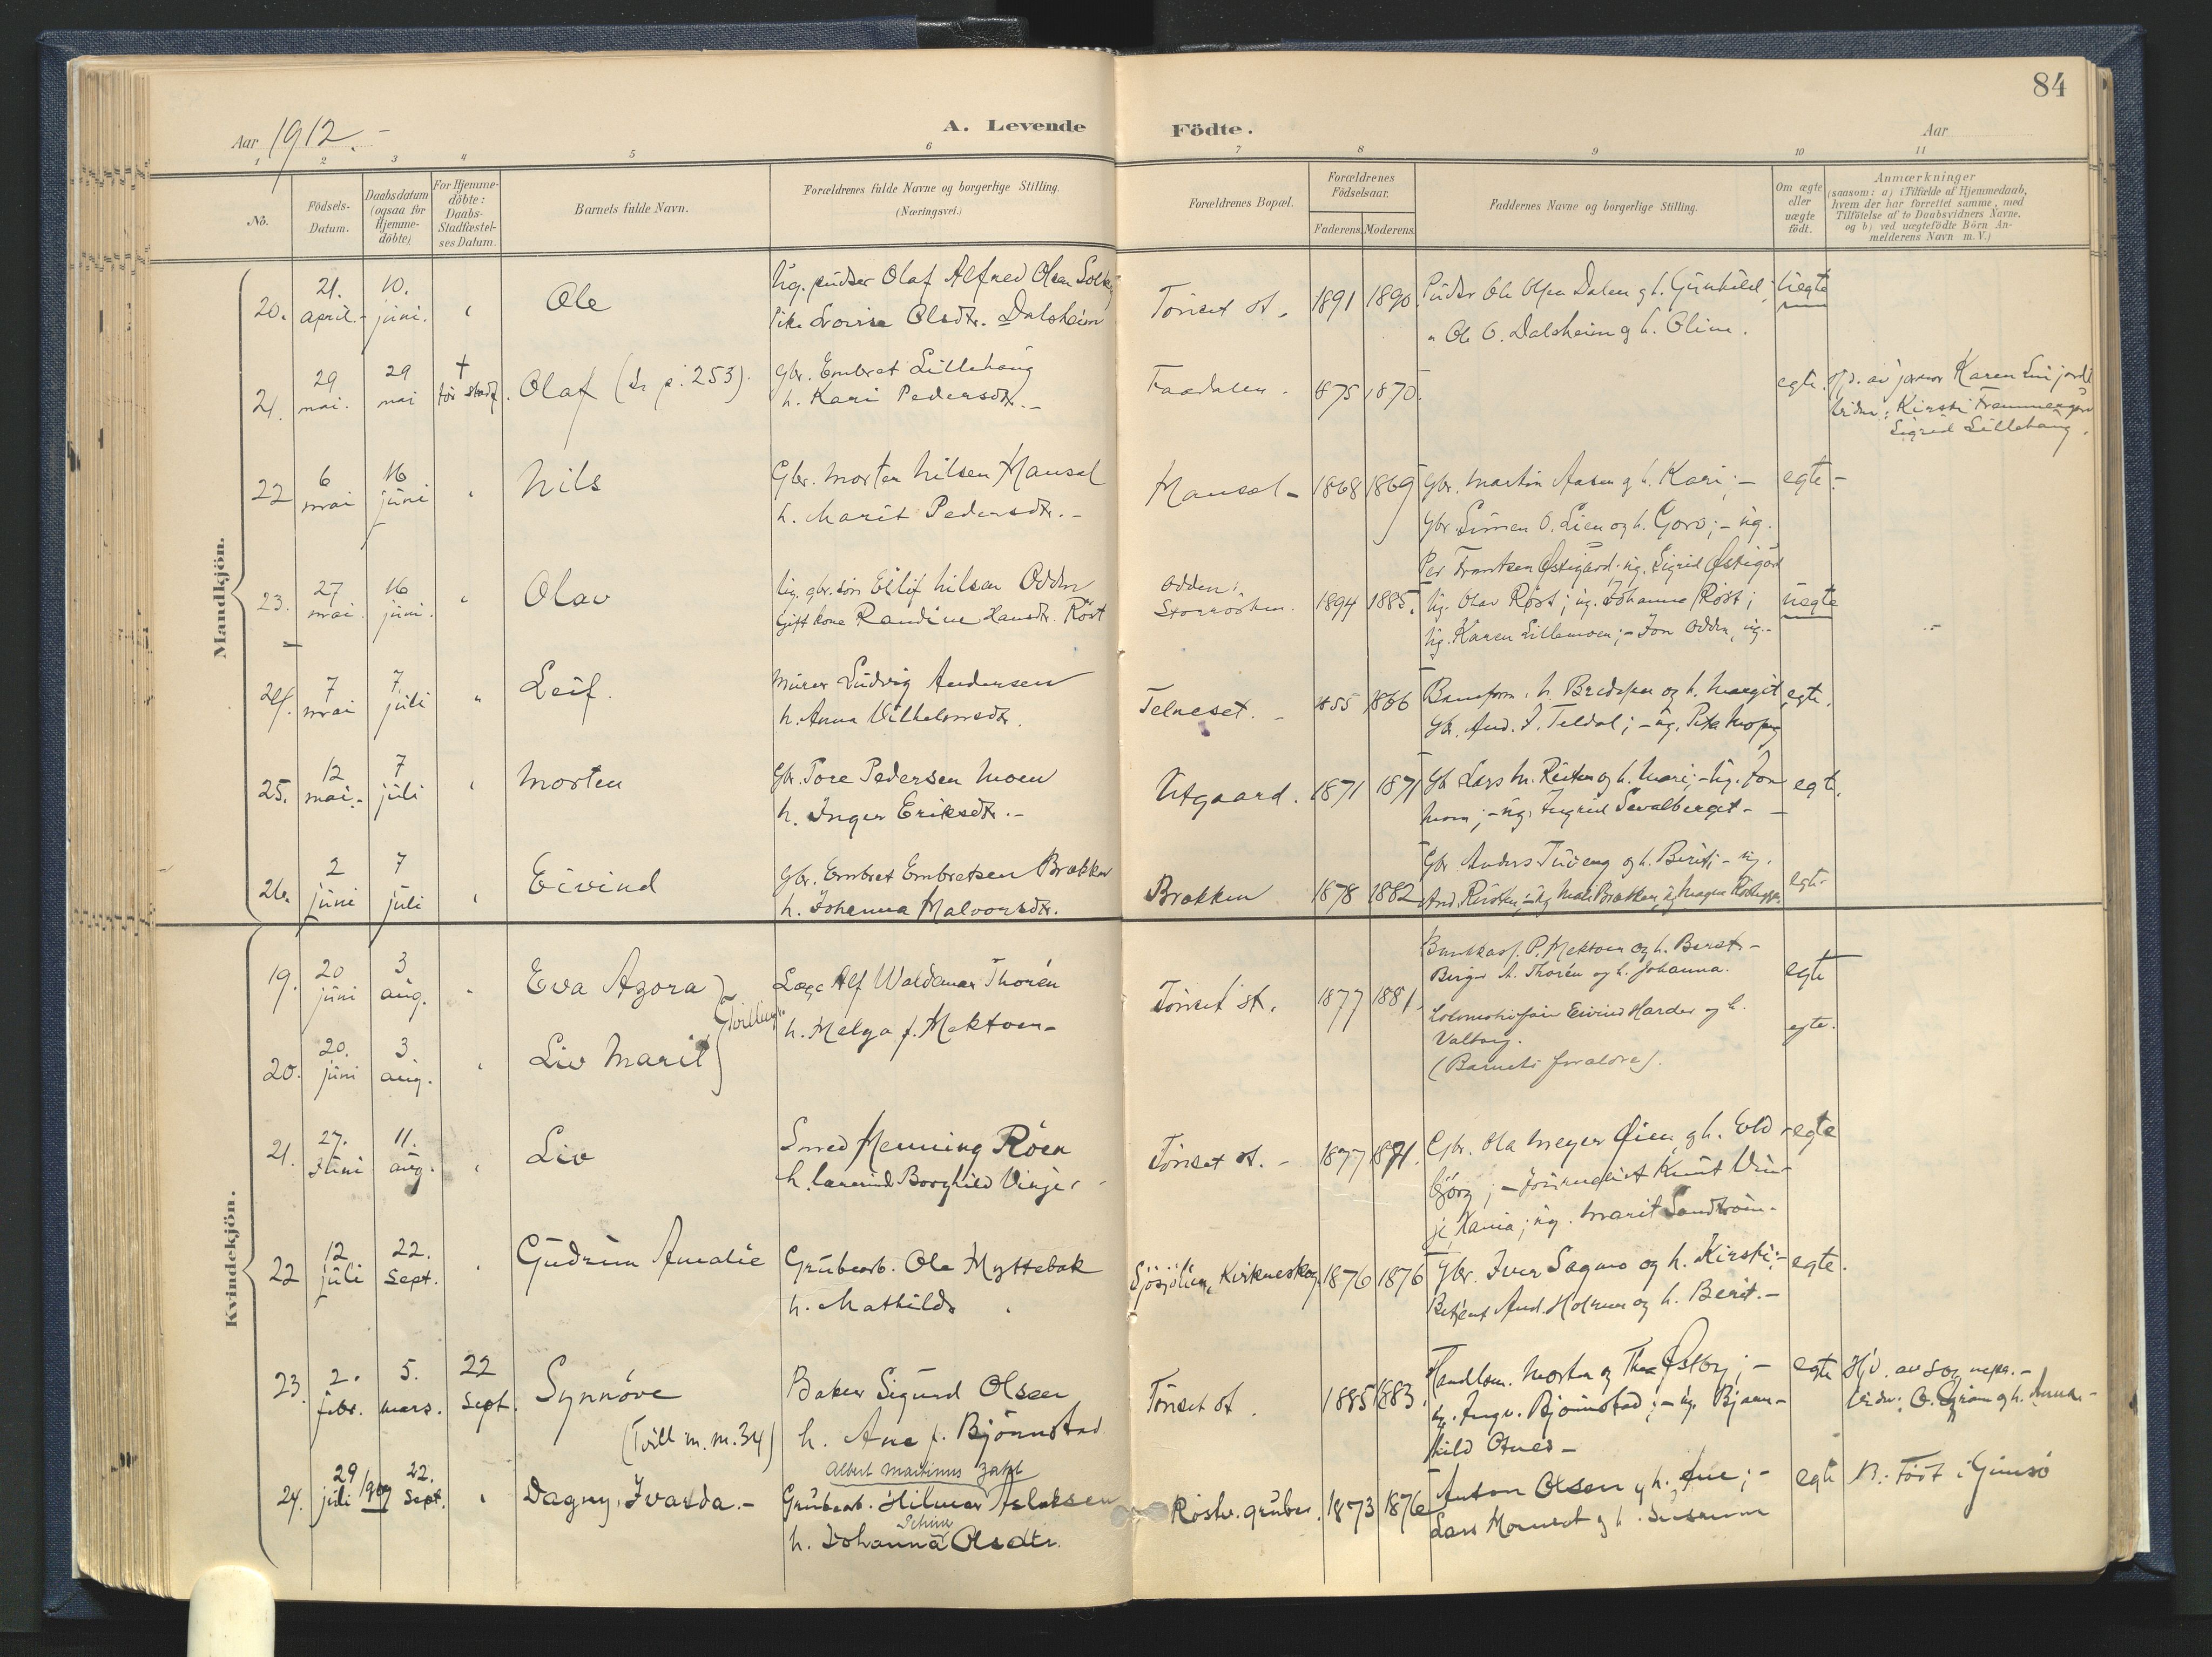 84
Aar 1912.-
A. Levende Födte.
Aar
1 2 3 4 5 6 7 8 9 10 11
No.
Födsels-
Datum.
Daabsdatum
(ogsaa for
Hjemme-
döbte)
For Hjemme-
döbte:
Daabs-
Stadfæstel-
ses Datum.
Barnets fulde Navn.
Forældrenes fulde Navne og borgerlige Stilling.
(Næringsvei.)
Forældrenes Bopæl.
Forældrenes
Födselsaar.
Faderens. Moderens.
Faddernes Navne og borgerlige Stilling.
Om ægte
eller
uægte
födt.
Anmærkninger
(saasom: a) i Tilfælde af Hjemmedaab,
hvem der har forrettet samme, med
Tilföielse af to Daabsvidners Navne.
og b) ved uægtefödte Börn An-
melderens Navn m. V.)
Mandkjön.
20. 21. april. 10. juni. Ole
Ug. pudser Olaf Alfred Olsen
Pike Lovise Olsdtr. Dalsheim
Tönset st. 1891 1890
Pudser Ole Olsen Dalen og h. Gunhild;
" Ole O. Dalsheim og h. Oline.
uegte
21. 29 mai. 29 mai † för stadf. Olaf (se p. 253).
Gbr. Embret Lillehaug
h. Kari Pedersdtr. -
Faadalen. 1875 1870.
egte.
av jormor Karen
Vidner: Kirsti
Sigrid Lillehaug.
22 6 mai 16 juni Nils
Gbr. Morten Nilsen Hansal
h. Marit Pedersdtr. -
Hansal - 1868 1869
Gbr. Martin Aasen og h. Kari; -
Gbr. Simen O. Lien og h. Goro; - ug.
Per Frantsen Östigård; ug. Sigrid Östigård
egte -
23. 27 mai. 16 juni. Olav
Ug. gbr. sön Eilif Nilsen Odden
Gift kone Randine Hansdtr. Röst
Odden;
1894 1885.
Ug. Olav Röst; ug. Johanna Röst;
Ug. Karen Lillemoen; - Jon Odden, ug. -
uegte
24. 7 mai 7. juli " Leif.
Murer Ludvig Andersen
h. Anna Vilhelmsdtr.
Telneset. - 1855 1866
Baneform. h. Bredesen og h. Margit
Gbr. And. J. Teldal; - ug.
egte.
25. 12 mai. - 7 juli Morten
Gbr. Tore Pedersen Moen
h. Inger Eriksdtr. -
Utgaard. 1871 1871
Gbr Lars M. Reiten og h. Mari; - Ug. Jon
Moen; - ug. Ingrid Savalberget -
egte.
26. 2 juni 7 juli Eivind
Gbr. Embret Embretsen Brækken
h. Johanna Halvorsdtr.
Brækken 1878 1882
Gbr. Anders Tuveng og h. Berit; - ug.
egte -
Kvindekjön.
19. 20 juni 3 aug. Eva Azora
Læge Alf Waldemar Thorén
h. Helga f. Mektoen -
Tvilling
Tönset st. 1877 1881.
P. Mektoen og h. Beret -
Birger A. Thorén og h. Johanna.
Eivind Harder og h.
Valborg.
(Barnets forældre).
egte
20. 20. juni 3 aug. Liv Marit
egte.
21. 27. Juni 11. aug. Liv
Smed Henning Röen
h. lærerinde Borghild Vinje.
Tönset st. - 1877 1871.
Gbr. Ola Meyer Öien og h. Eld-
björg; - Journalist Knut Vin-
je, Hania; ug. Marit Sandtröen.
egte
22 12 juli 22. Sept. Gudrun Amalie
Grubearb. Ole Myttebak
h. Mathilde
Sjösjölien, Kvikneskog. 1876 1876
Gbr. Iver Sagmo og h. Kirsti; -
Betjent And. Holmen og h. Berit. -
egte.
23. 2. febr. 5. mars. 22 Sept. Synnöve
(Tvill m. m. 34)
Baker Sigurd Olsen
h. Ane f. Björnstad
Tönset st. 1885 1883.
Handlsm. Morten og Thea Östby; -
ug. Ingv. Björnstad; - ug. Bjarn-
hild Otnes -
egte
Hjd. av sognepr. -
Vidn: O. og h. Anna. -
24. 29 juli 1909 22. Sept. Dagny, Ivarda. -
Albert Martinus
Grubearb. Hilmar Aslaksen
h. Johanna Olsdtr.
Röstv. gruber. 1873 1876
Anton Olsen og h. Ane; -
Lars og h.
egte
N. Födt i Gimsö